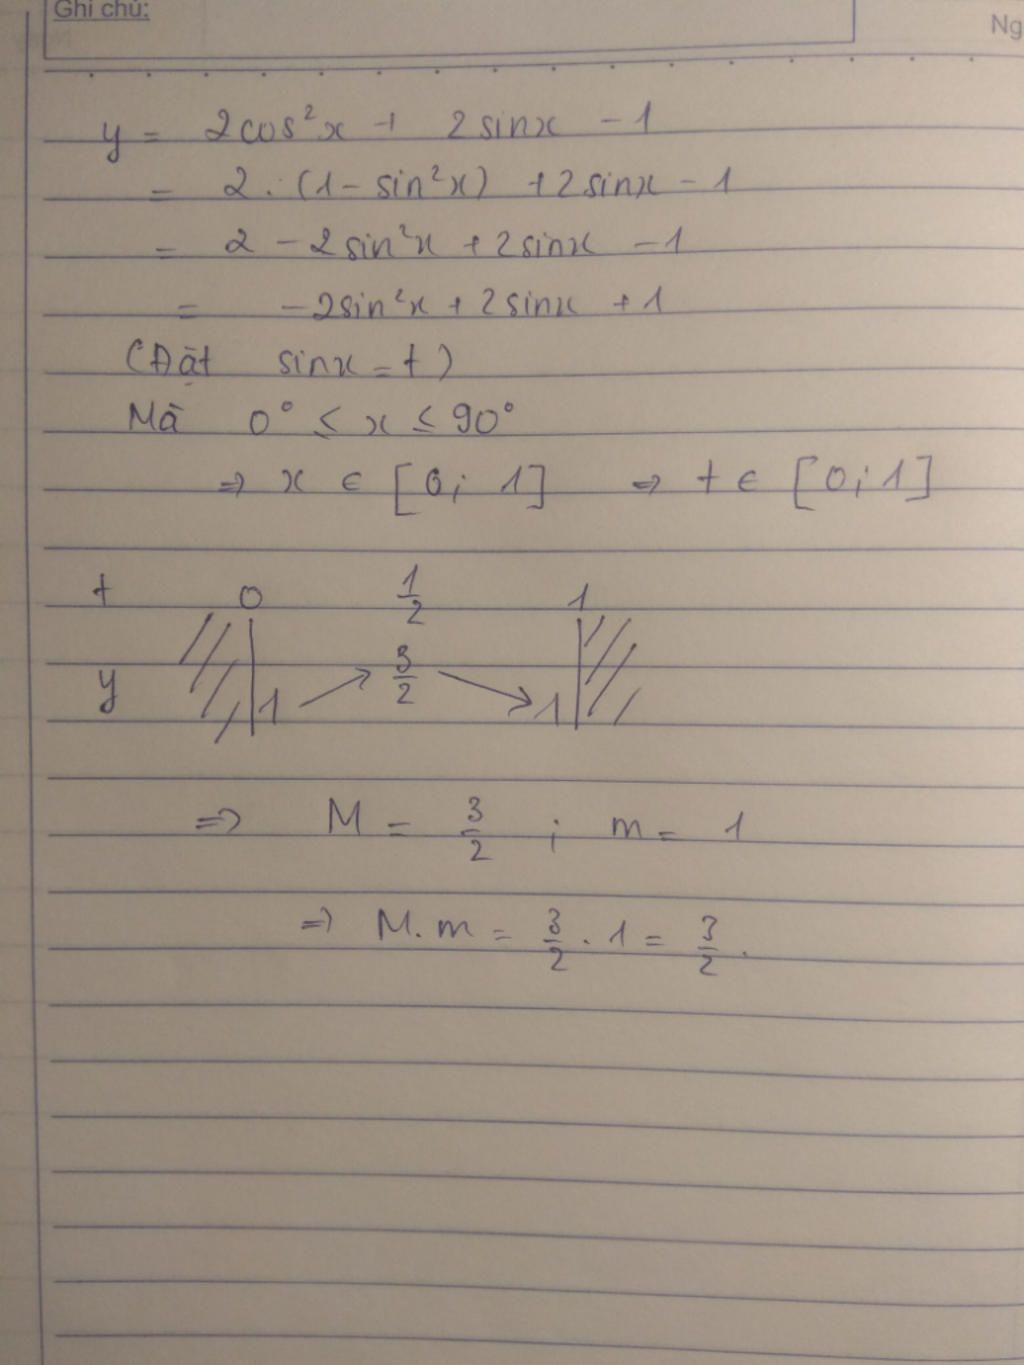 Ghi chú:
Ng
y = 2cos²x + 2sinx - 1
= 2. (1 - sin²x) + 2sinx - 1
= 2 - 2sin²x + 2sinx - 1
= - 2sin²x + 2sinx + 1
(Đặt sinx = t)
Mà 0° ≤ x ≤ 90°
⇒ x ∈ [0; 1] ⇒ t ∈ [0; 1]
t 0 1/2 1
y 1 ↗ 3/2 ↘ 1
⇒ M = 3/2 ; m = 1
⇒ M.m = 3/2 . 1 = 3/2 .